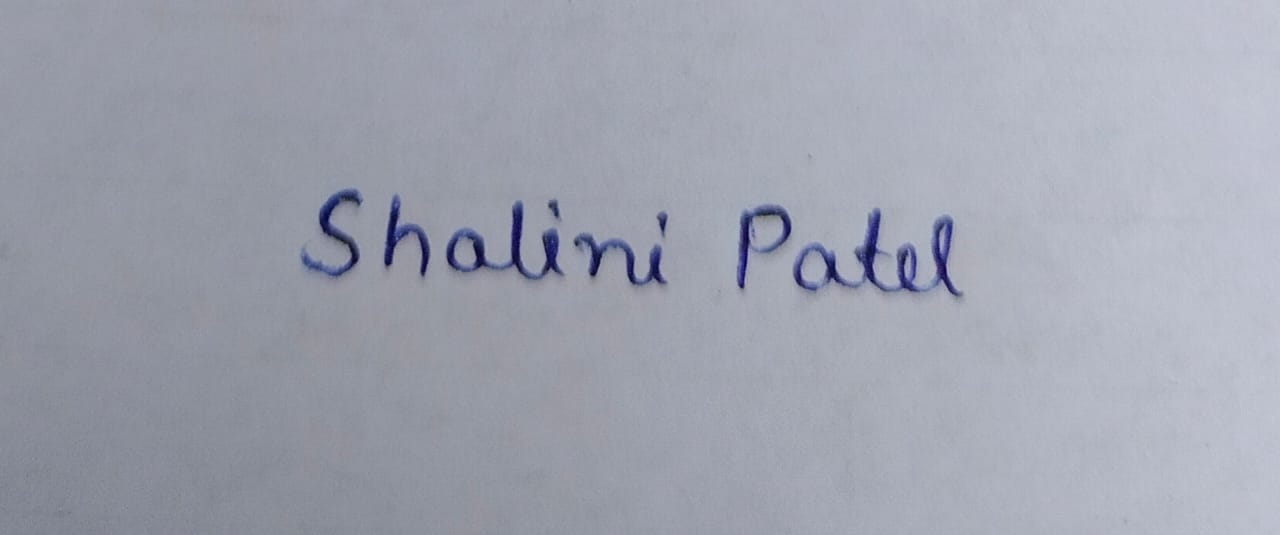 Shalini Patel